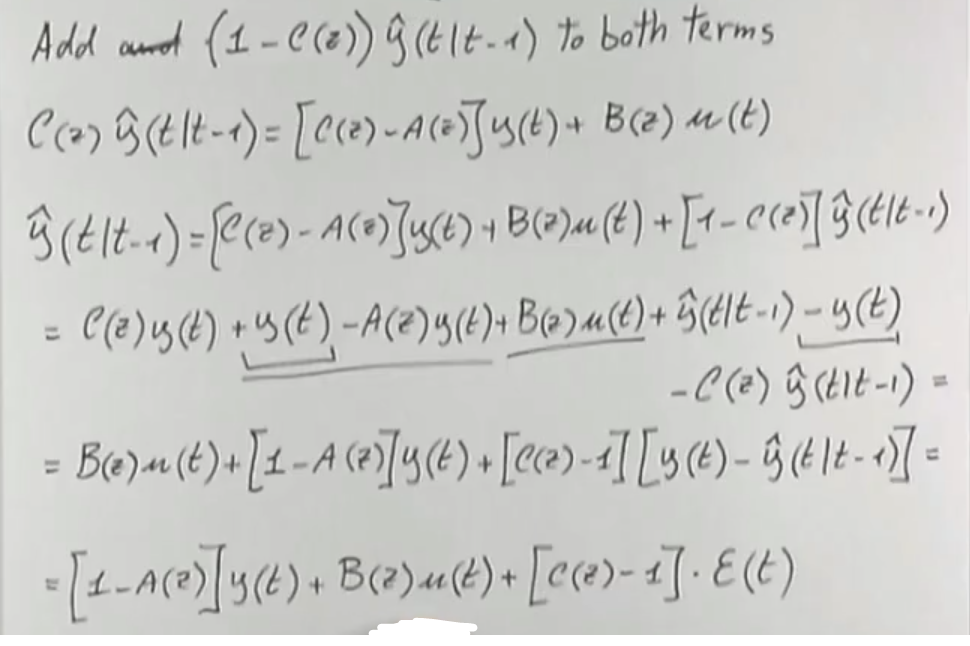 Add and (1 - C(z)) ŷ(t|t-1) to both terms
C(z) ŷ(t|t-1) = [C(z) - A(z)] y(t) + B(z) u(t)
ŷ(t|t-1) = [C(z) - A(z)] y(t) + B(z) u(t) + [1 - C(z)] ŷ(t|t-1)
= C(z) y(t) + y(t) - A(z) y(t) + B(z) u(t) + ŷ(t|t-1) - y(t)
- C(z) ŷ(t|t-1) =
= B(z) u(t) + [1 - A(z)] y(t) + [C(z) - 1] [y(t) - ŷ(t|t-1)] =
= [1 - A(z)] y(t) + B(z) u(t) + [C(z) - 1] · ε(t)